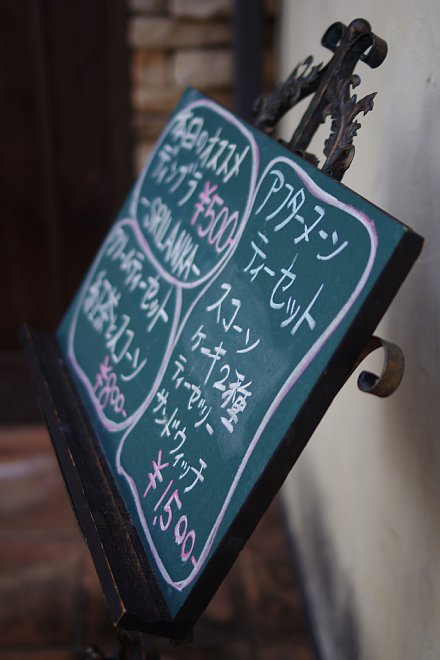 本日のオススメ
ディンブラ
¥500-
-SRILANKA-
クリームティーセット
紅茶とスコーン
¥800-
アフターヌーン
ティーセット
スコーン
ケーキ2種
ティーゼリー
サンドウィッチ
¥1,500-